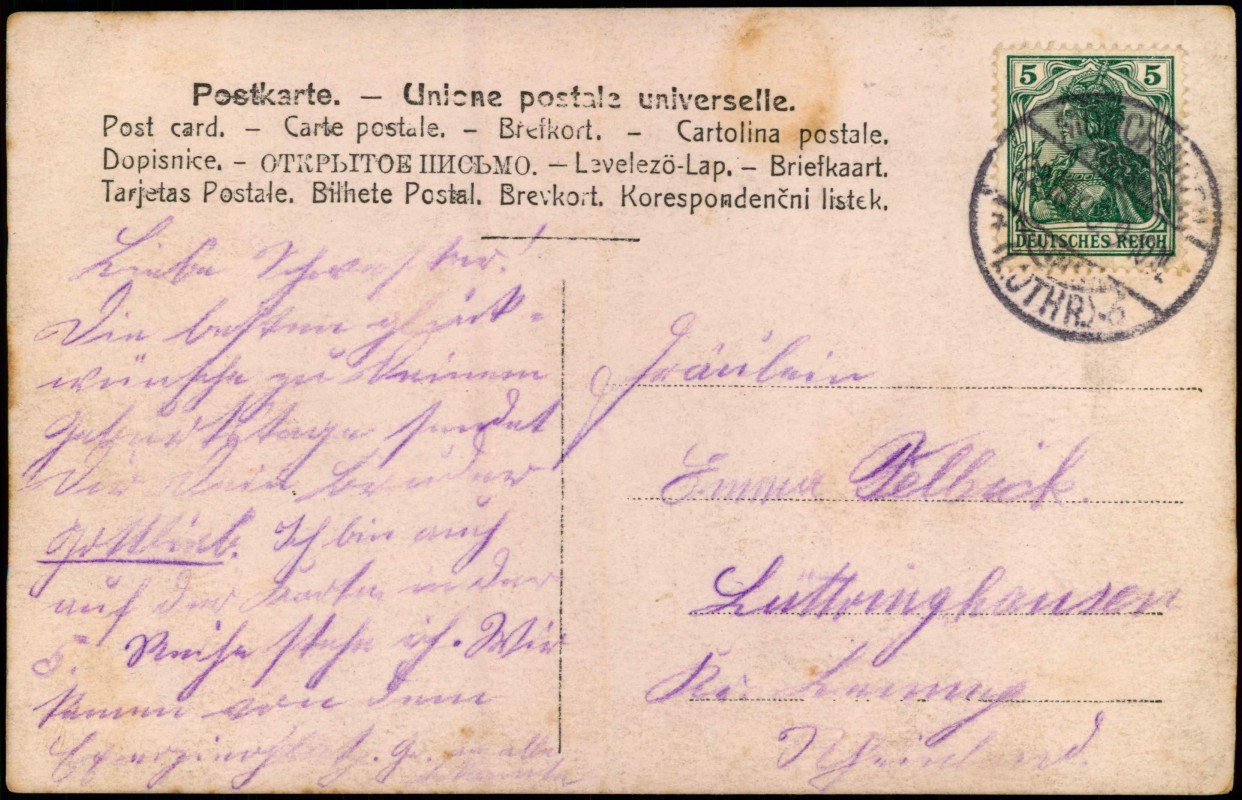 Postkarte. – Unione postale universelle.
Post card. – Carte postale. – Brefkort. – Cartolina postale.
Dopisnice. – ОТКРЫТОЕ ПИСЬМО. – Levelezö-Lap. – Briefkaart.
Tarjetas Postale. Bilhete Postal. Brevkort. Korespondenční listek.
5 5
DEUTSCHES REICH
(LOTHR.)
Liebe Schwester!
Die besten Glück-
wünsche zu Deinem
Geburtstage sendet
Dir Dein Bruder
Gottlieb. Ich bin auch
auf der Karte in der
5. Reihe stehe ich. Wir
kamen von dem
Exerzierplatz. an alle
Fräulein
Emma Felbick.
Lüttringhausen
Kr. Lennep
Rheinland.